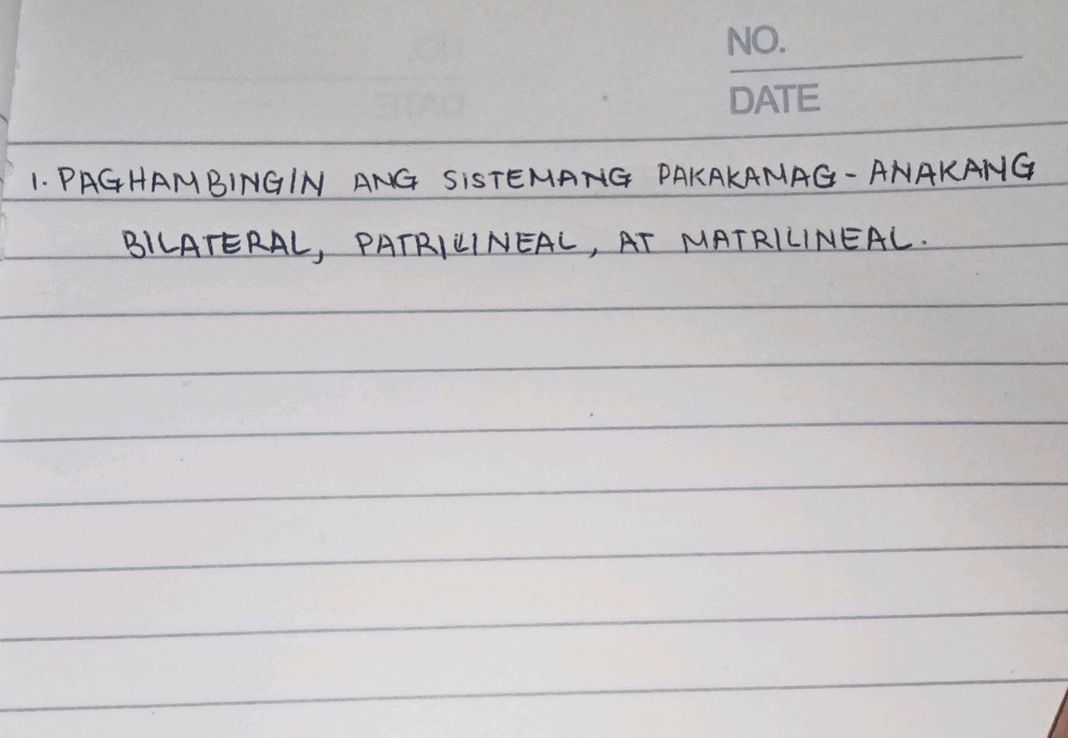 NO.
DATE
1. PAGHAMBINGIN ANG SISTEMANG PAKAKAMAG-ANAKANG
BILATERAL, PATRILINEAL, AT MATRILINEAL.